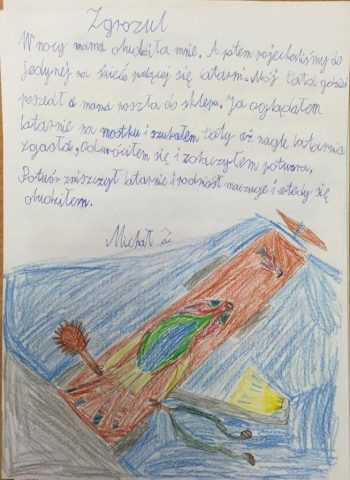 Zgrozul
W nocy mama obudziła mnie. A potem pojechaliśmy do
jedynej na świecie palącej się latarni. Mój tata gdzieś
poszedł a mama poszła do sklepu. Ja oglądałem
latarnie na mostku i szukałem taty aż nagle latarnia
zgasła. Odwróciłem się i zobaczyłem potwora.
Potwór zniszczył latarnie i podniósł maczugę i wtedy się
obudziłem.
Michał Z